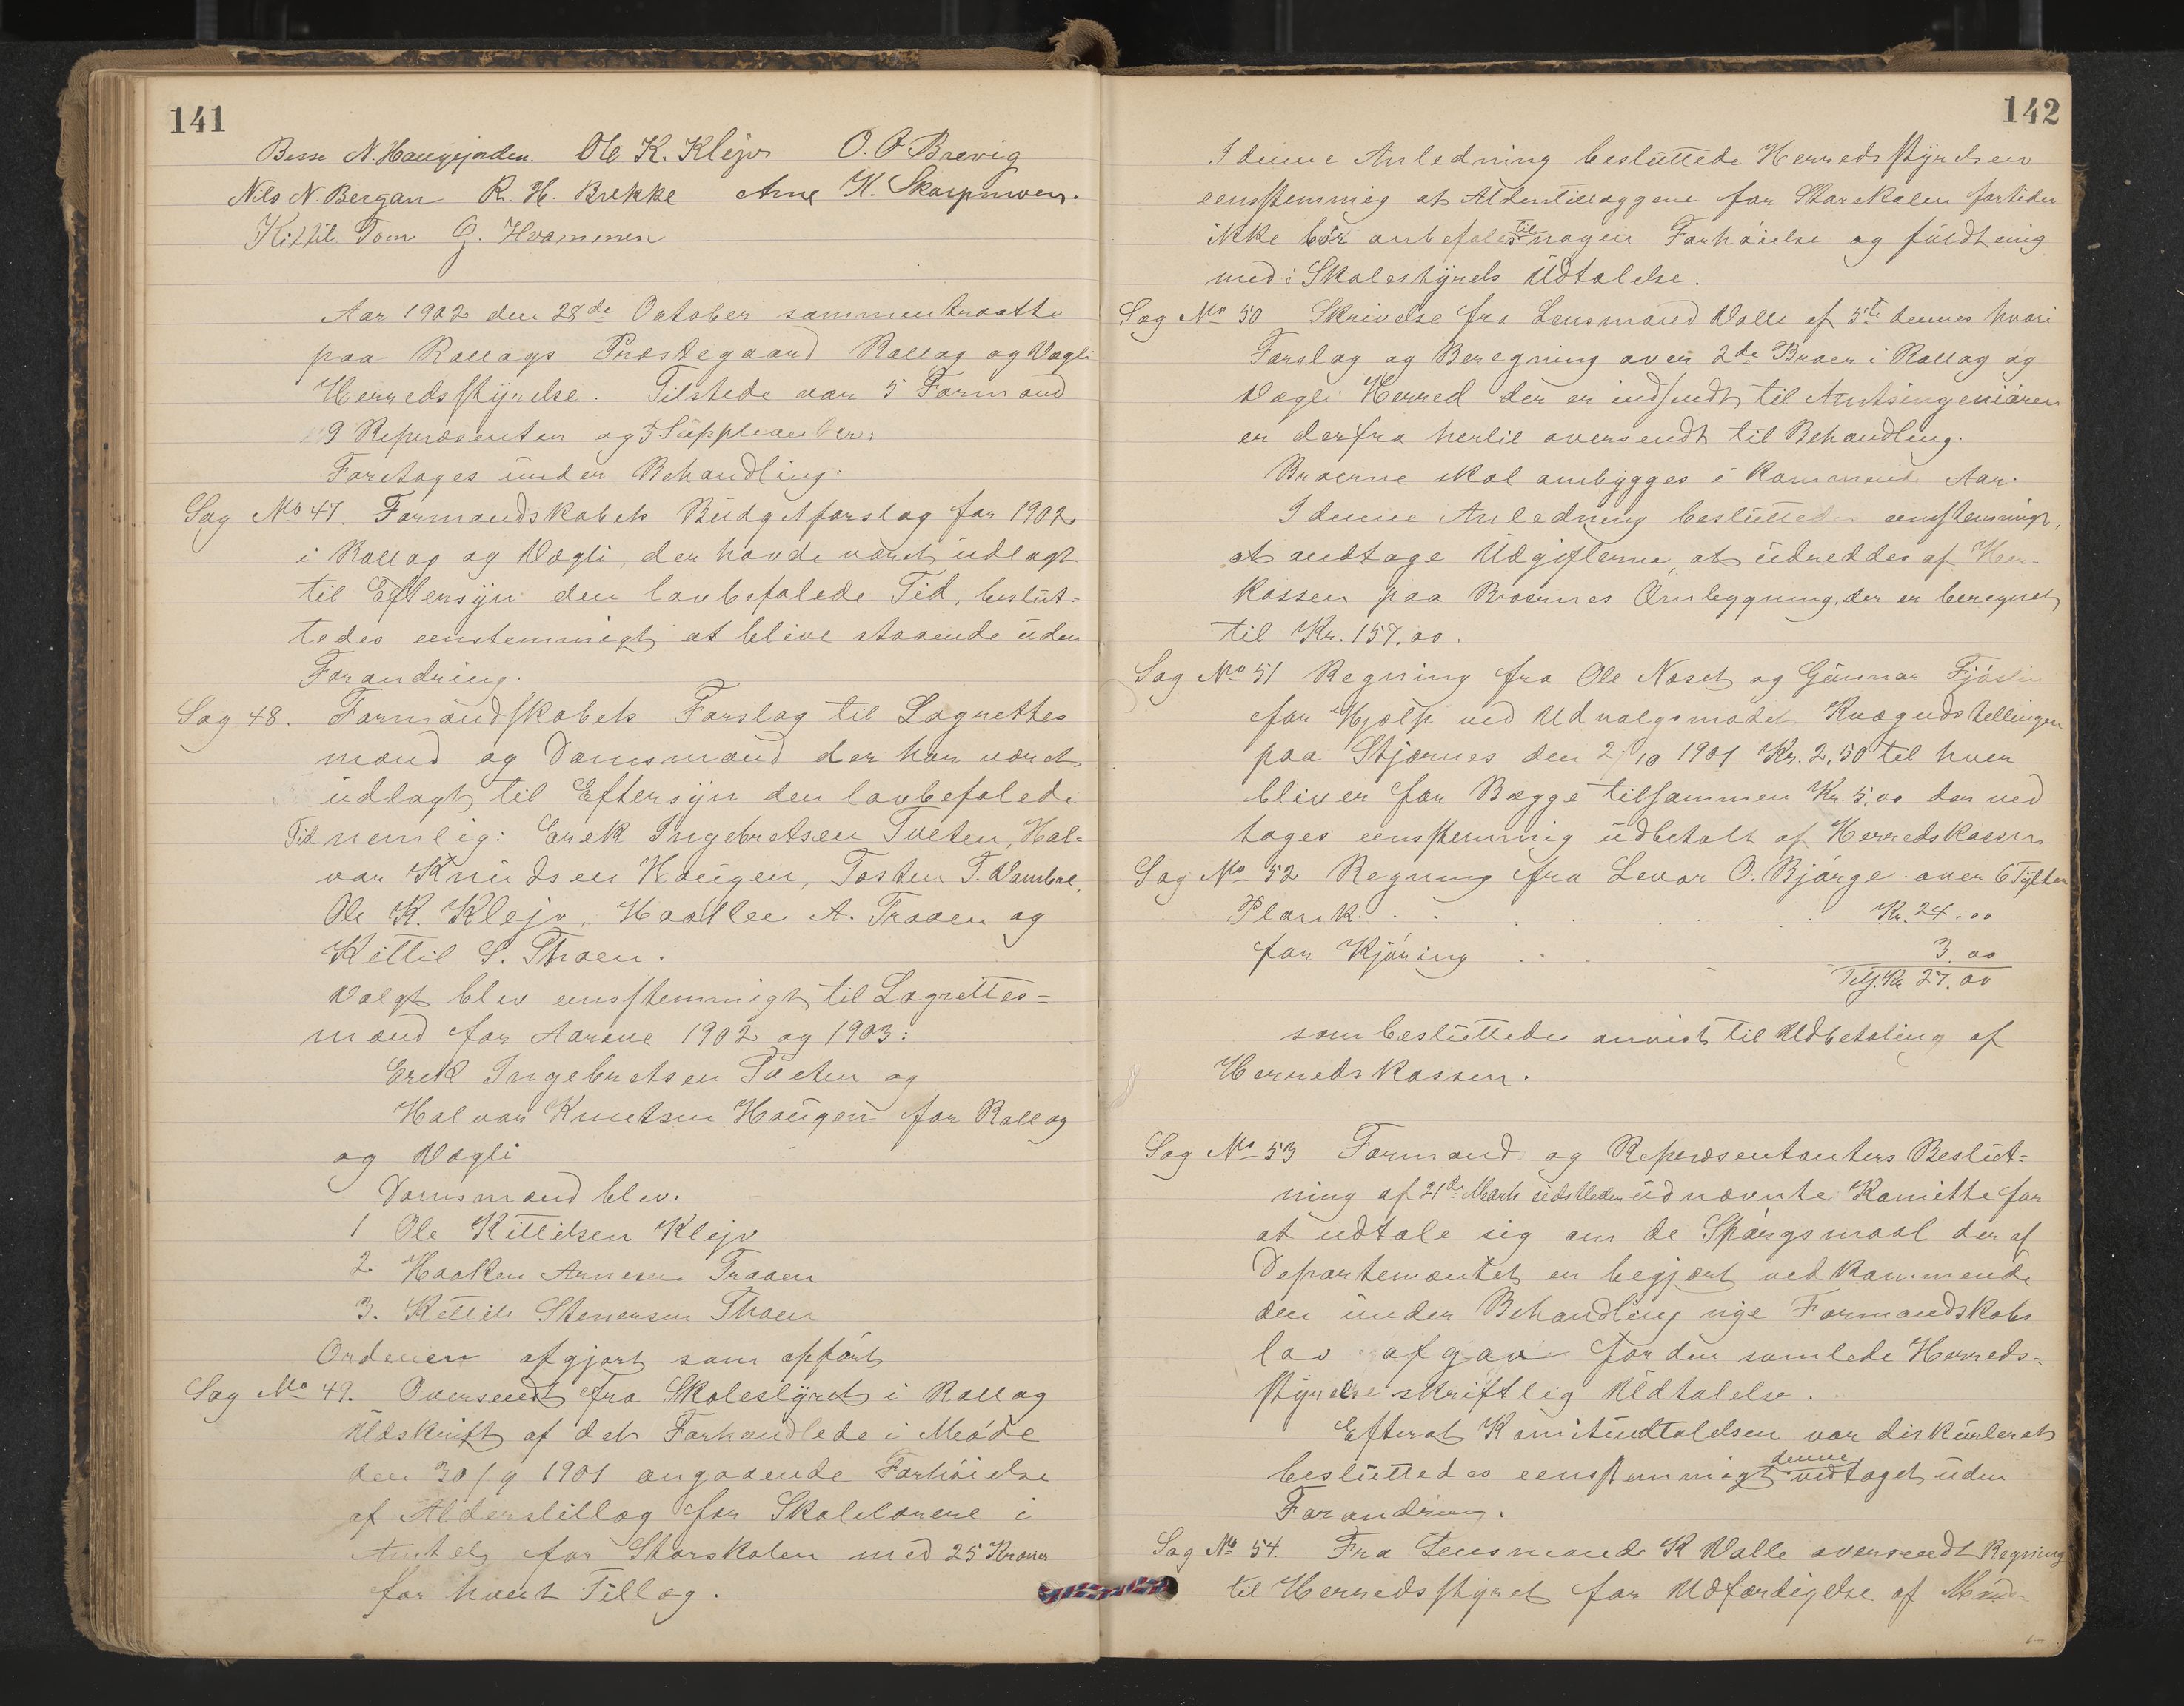 141
Besse N. Haugejorden. Ole K. Klejv O. O Brevig
Nils N. Bergan R. H. Brekke Arne K. Skarpmoen.
Kittil Tom G. Hvammen
Aar 1902 den 28de October sammentraatte
paa Rollags Præstegaard Rollag og Vægli
Herredsstyrelse. Tilstede var 5 Formænd
9 Repræsenter og 5 Suppleanter.
Foretages under Behandling.
Sag No 47. Formandskabets Büdgetforslag for 1902
i Rollag og Vægli, der havde været üdlagt
til Eftersÿn den lovbefalede Tid, beslüt-
tedes eenstemmigt at blive staaende üden
Forandring.
Sag 48. Formandskabets Forslag til Lagrettes
mænd og Domsmænd der har været
üdlagt til Eftersÿn den lovbefalede
Tid nemlig: Erek Ingebretsen Tveten, Hal-
vor Knüdsen Haügen, Tosten T. Vambre,
Ole K. Klejv, Haaken A. Traaen og
Kittil S. Thoen.
Valgt blev eensstemmigt til Lagrettes-
mænd for Aarene 1902 og 1903:
Erek Ingebretsen Tveten og
Halvor Knutsen Haügen for Rollag
og Vægli
Domsmænd blev.
1 Ole Kittilsen Klejv
2 Haaken Arnesen Traaen
3. Kittil Stenersen Thoen
Ordenen afgjort som opført
Sag No 49. Oversendt fra Skolestÿret i Rollag
Üdskrift af det Forhandlede i Møde
den 30/9 1901 angaaende Forhøielse
af Alderstillæg for Skolelærere i
Amtets for Storskolen med 25 Kroner
for hvert Tillæg.
142
I denne Anledning beslüttede Herredsstÿrelsen
eensstemmig at Alderstillæggene for Storskolen fortiden
ikke bør anbefales til nogen Forhøielse og füldt enig
med i Skolestÿrets Üdtalelse.
Sag No 50 Skrivelse fra Lensmand Valle af 5te dennes hvori
Forslag og Beregning over 2de Broer i Rollag og
Vægli Herred der er indsendt til Amtsingeniøren
er derfra hertil oversendt til Behandling.
Broerne skal ombygges i kommende Aar.
I denne Anledning beslüttedes eensstemmigt,
at vedtage Üdgifterne, at üdreddes af Her-
kassen paa Broernes Ombygning, der er beregnet
til Kr. 157,00.
Sag No 51 Regning fra Ole Næset og Günnar Fjøslie
for Hjælp ved Udvalgsmødet Kvægudstellingen
paa Stjærnes den 2/10 1901 Kr. 2,50 til hver
bliver for Begge tilsammen Kr. 5,00 der ved
tages eensstemmig üdbetalt af Herredskassen
Sag No 52 Regning fra Levor O. Bjørge over 6 Tÿlter
Plank . . . . . Kr. 24.00
for Kjøring . . . 3.00
Tils. Kr 27.00
som beslüttedes anvist til Udbetaling af
Herredskassen.
Sag No 53 Formænd og Repræsentanters Beslüt-
ning af 21de Marts sidstleden üdnævnte Komitte for
at üdtale sig om de Spørgsmaal der af
Departementet er begjært vedkommende
den ünder Behandling nye Formandskabs
lov afgav for den samlede Herreds-
stÿrelse skriftlig Üdtalelse.
Efterat Komiteüdtalelsen var disküteret
beslüttedes eensstemmigt denne vedtaget üden
Forandring.
Sag No 54. Fra Lensmand K Valle oversendt Regning
til Herredsstÿret for Udfærdigelse af